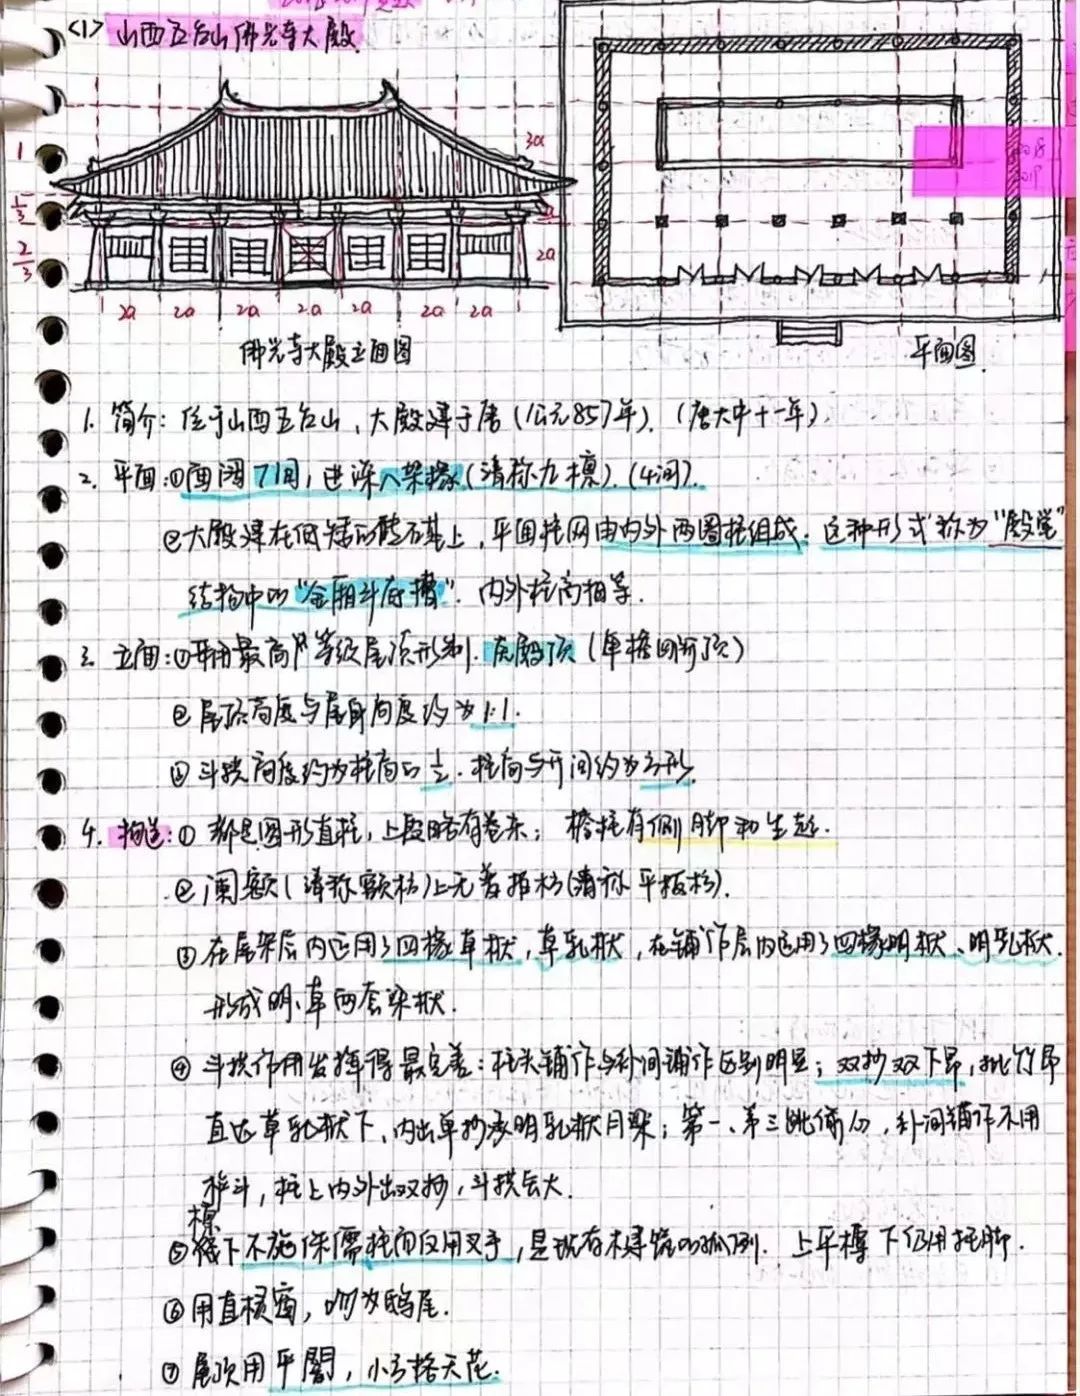 <1> 山西五台山佛光寺大殿
1
1/3
2/3
3a
a
2a
2a 2a 2a 2a 2a 2a 2a
佛光寺大殿立面图
平面图.
1. 简介: 位于山西五台山, 大殿建于唐 (公元857年). (唐大中十一年)
2. 平面: ①面阔7间, 进深八架椽 (清称九檩). (4间).
②大殿建在低矮的砖石基上, 平面柱网由内外两圈柱组成. 这种形式称为“殿堂”
结构中的“金厢斗底槽”. 内外柱高相等.
3. 立面: ①采用最高等级屋顶形制. 庑殿顶 (单檐四阿顶)
②屋顶高度与屋身高度约为1:1.
③斗拱高度约为柱高的1/2. 柱高与开间约为方形.
4. 构造: ① 都是圆形直柱, 上段略有卷杀; 檐柱有侧脚和生起.
②阑额 (清称额枋) 上无普拍枋 (清称平板枋).
③在屋架层内运用了四椽草栿, 草乳栿, 在铺作层内运用了四椽明栿、明乳栿.
形成明、草两套梁栿.
④斗拱作用发挥得最完善: 柱头铺作与补间铺作区别明显; 双抄双下昂, 批竹昂
直达草乳栿下、内出单抄承明乳栿月梁; 第一、第三跳偷心, 补间铺作不用
栌斗, 柱上内外出双抄, 斗拱宏大.
⑤ 檩下不施侏儒柱而仅用叉手, 是现存木构的孤例. 上平槫下仍用托脚.
⑥用直棂窗, 吻为鸱尾.
⑦ 屋顶用平闇, 小方格天花.